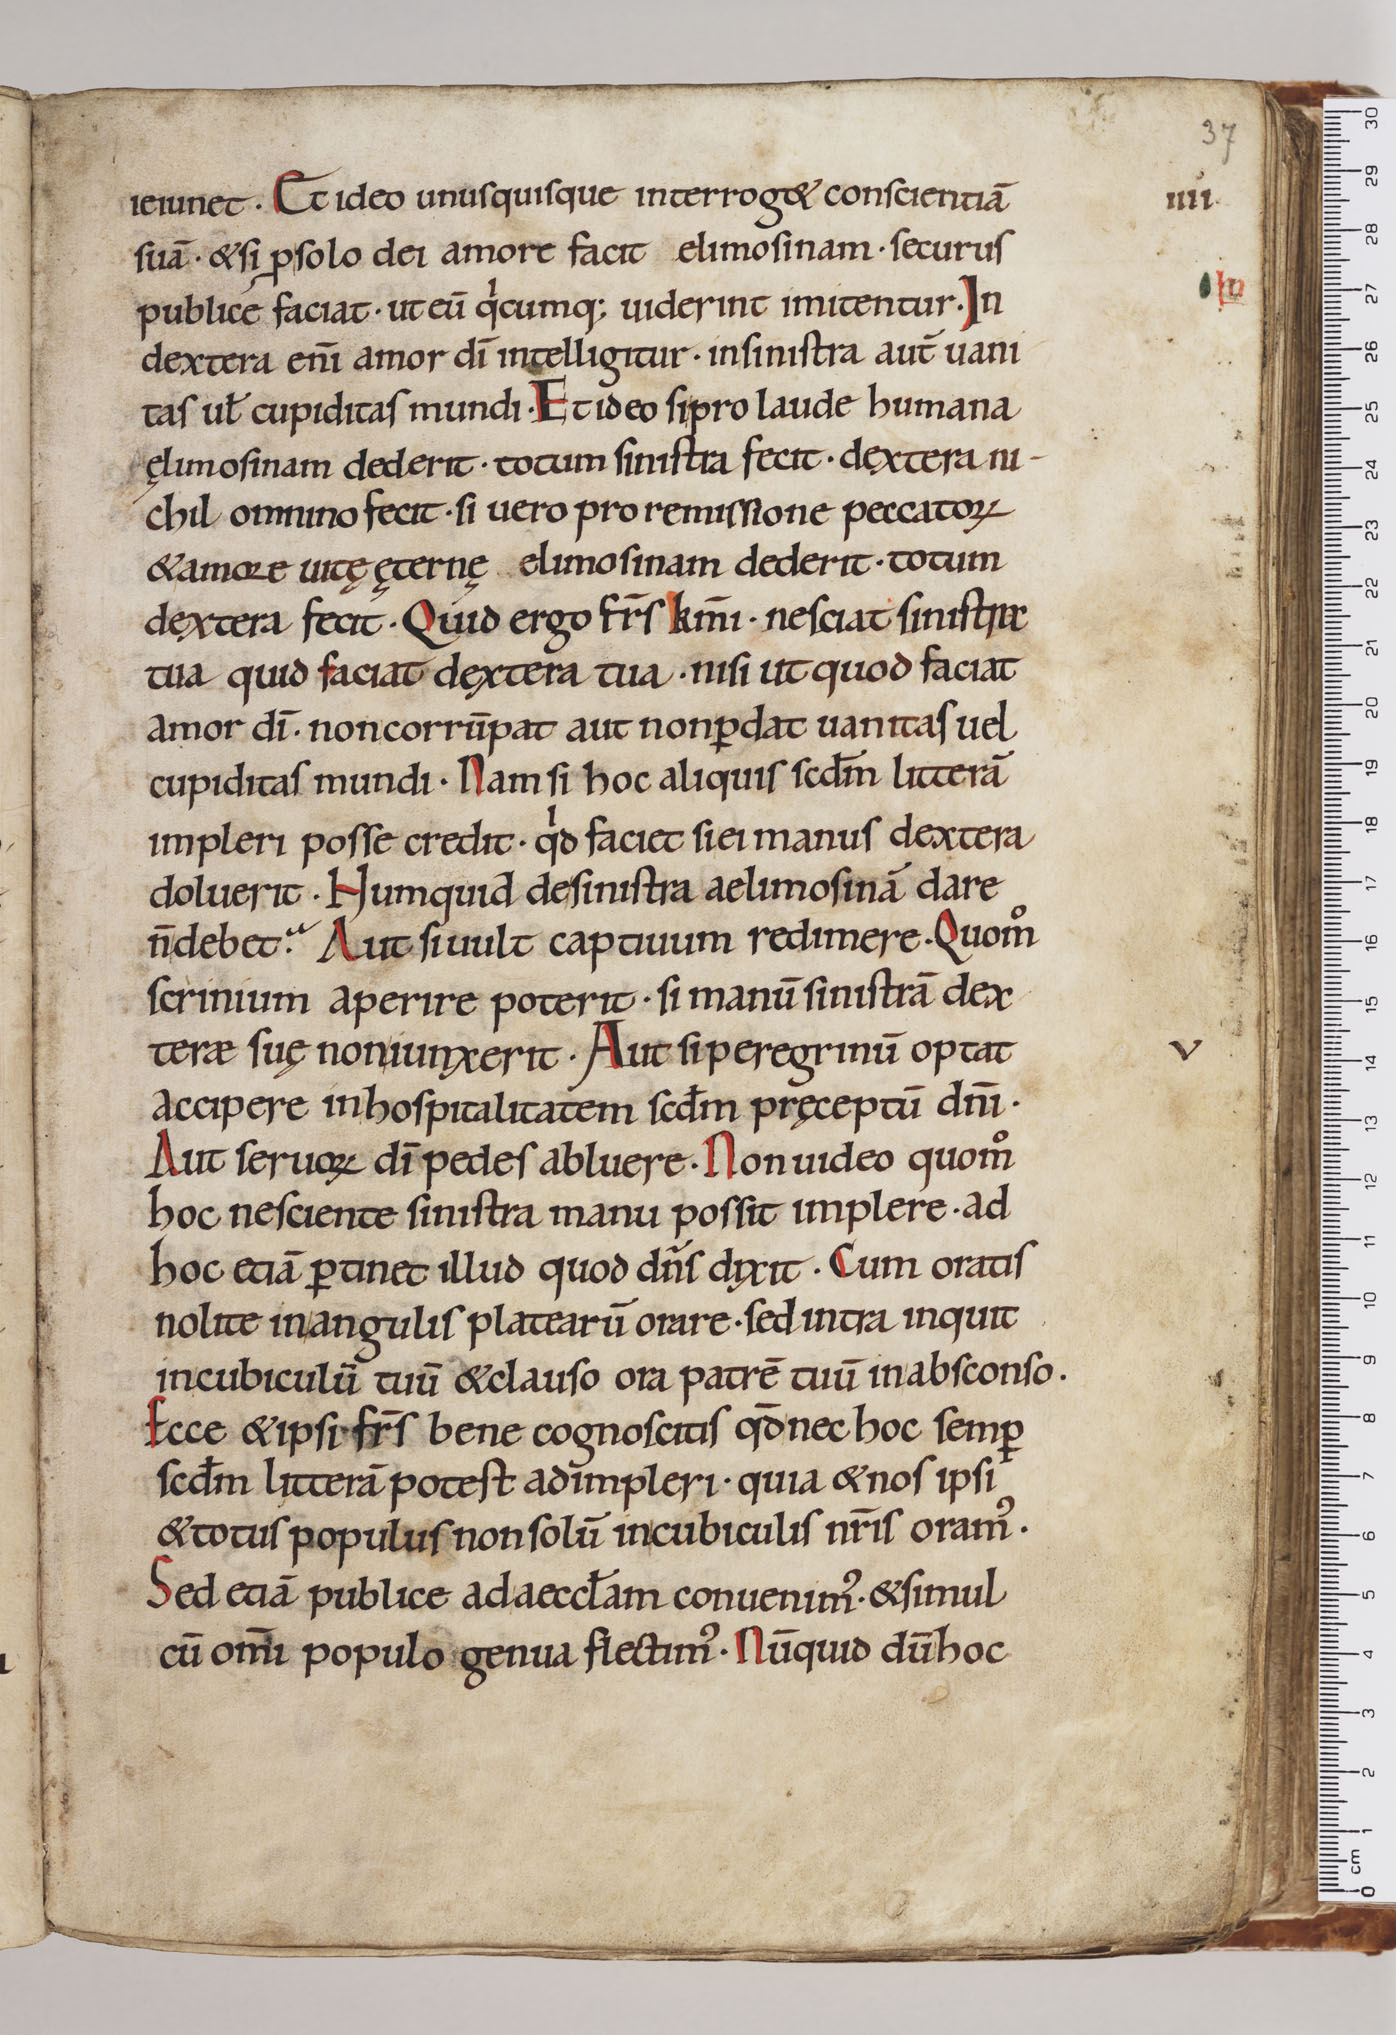 37
ieiunet · Et ideo unusquisque interrog& conscientiā
iiii·
suā · &si ꝑsolo dei amore facit elimosinam · securus
publice faciat · ut eū qͥcumq; uiderint imitentur · In
dextera eni̅ amor di̅ intelligitur · insinistra aut̅ uani
tas ul̅ cupiditas mundi · Et ideo sipro laude humana
ęlimosinam dederit · totum sinistra fecit · dextera ni-
chil omnino fecit · si uero pro remissione peccatoꝝ
&amore uitę ęternę elimosinam dederit · totum
dextera fecit · Quid ergo fr̅s km̅i · nesciat sinistra
tua quid faciat dextera tua · nisi ut quod faciat
amor di̅ · noncorrūpat aut nonꝑdat uanitas uel
cupiditas mundi · Nam si hoc aliquis scd̅m litterā
impleri posse credit · qͥd faciet siei manus dextera
doluerit · Numquid desinistra aelimosinā dare
n̅debet? Aut siuult captiuum redimere · Quom̊
scrinium aperire poterit · si manū sinistrā dex
teræ suę noniunxerit · Aut siperegrinū optat
v
accipere inhospitalitatem scd̅m pręceptū dn̅i ·
Aut seruoꝝ di̅ pedes abluere · Non uideo quom̊
hoc nesciente sinistra manu possit implere · ad
hoc etiā ꝑtinet illud quod dn̅s dixit · Cum oratis
nolite inangulis platearū orare · sed intra inquit
incubiculū tuū &clauso ora patrē tuū inabsconso ·
Ecce &ipsi fr̅s bene cognoscitis qd̅ nec hoc semꝑ
scd̅m litterā potest adimpleri · quia &nos ipsi
&totus populus nonsolū incubiculis nr̅is oram᾿ ·
Sed etiā publice adaeccl̅am conuenim᾿ · &simul
cū om̅i populo genua flectim᾿ · Nūquid dūhoc